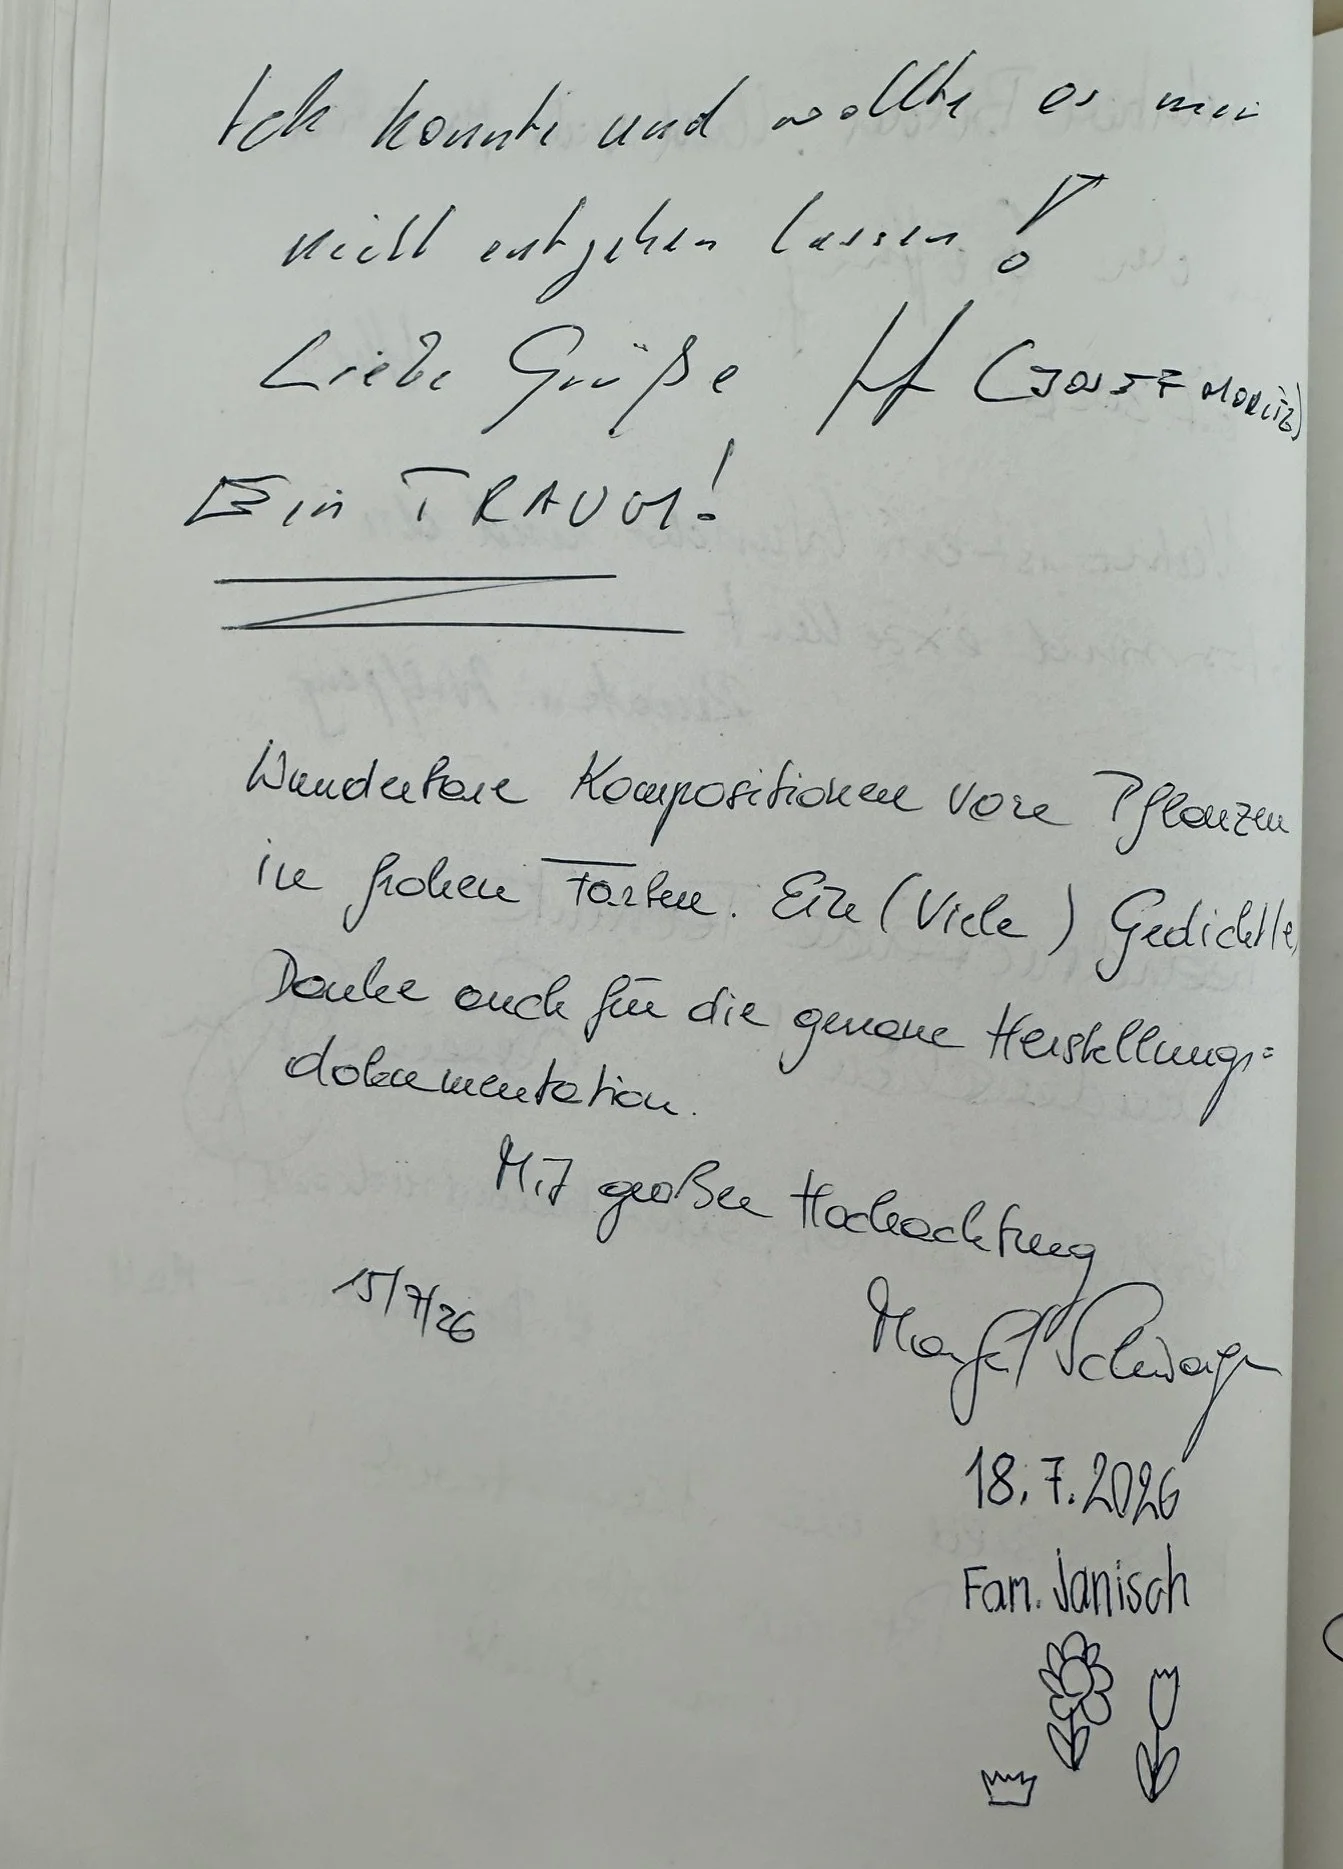 Ich konnte und wollte es mir
nicht entgehen lassen!
Liebe Grüße (JOSEF MORITZ)
Ein TRAUM!
Wunderbare Kompositionen von Pflanzen
in frohen Farben. Ein (Viele) Gedicht/e,
Danke auch für die genaue Herstellungs=
dokumentation.
Mit großer Hochachtung
15/7/26
Schwaiger
18.7.2026
Fam. Janisch